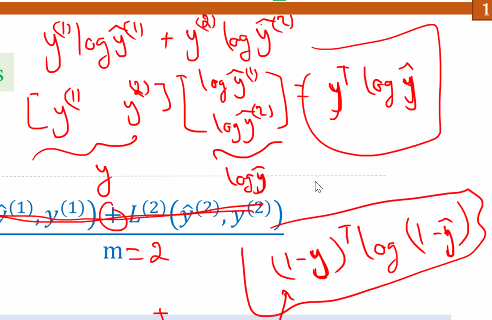 1
y⁽¹⁾ log ŷ⁽¹⁾ + y⁽²⁾ log ŷ⁽²⁾
s
[y⁽¹⁾ y⁽²⁾] [log ŷ⁽¹⁾ log ŷ⁽²⁾] = yᵀ log ŷ
y log ŷ
⁽¹⁾, y⁽¹⁾) + L⁽²⁾(ŷ⁽²⁾, y⁽²⁾)
m = 2
(1-y)ᵀ log (1-ŷ)
+